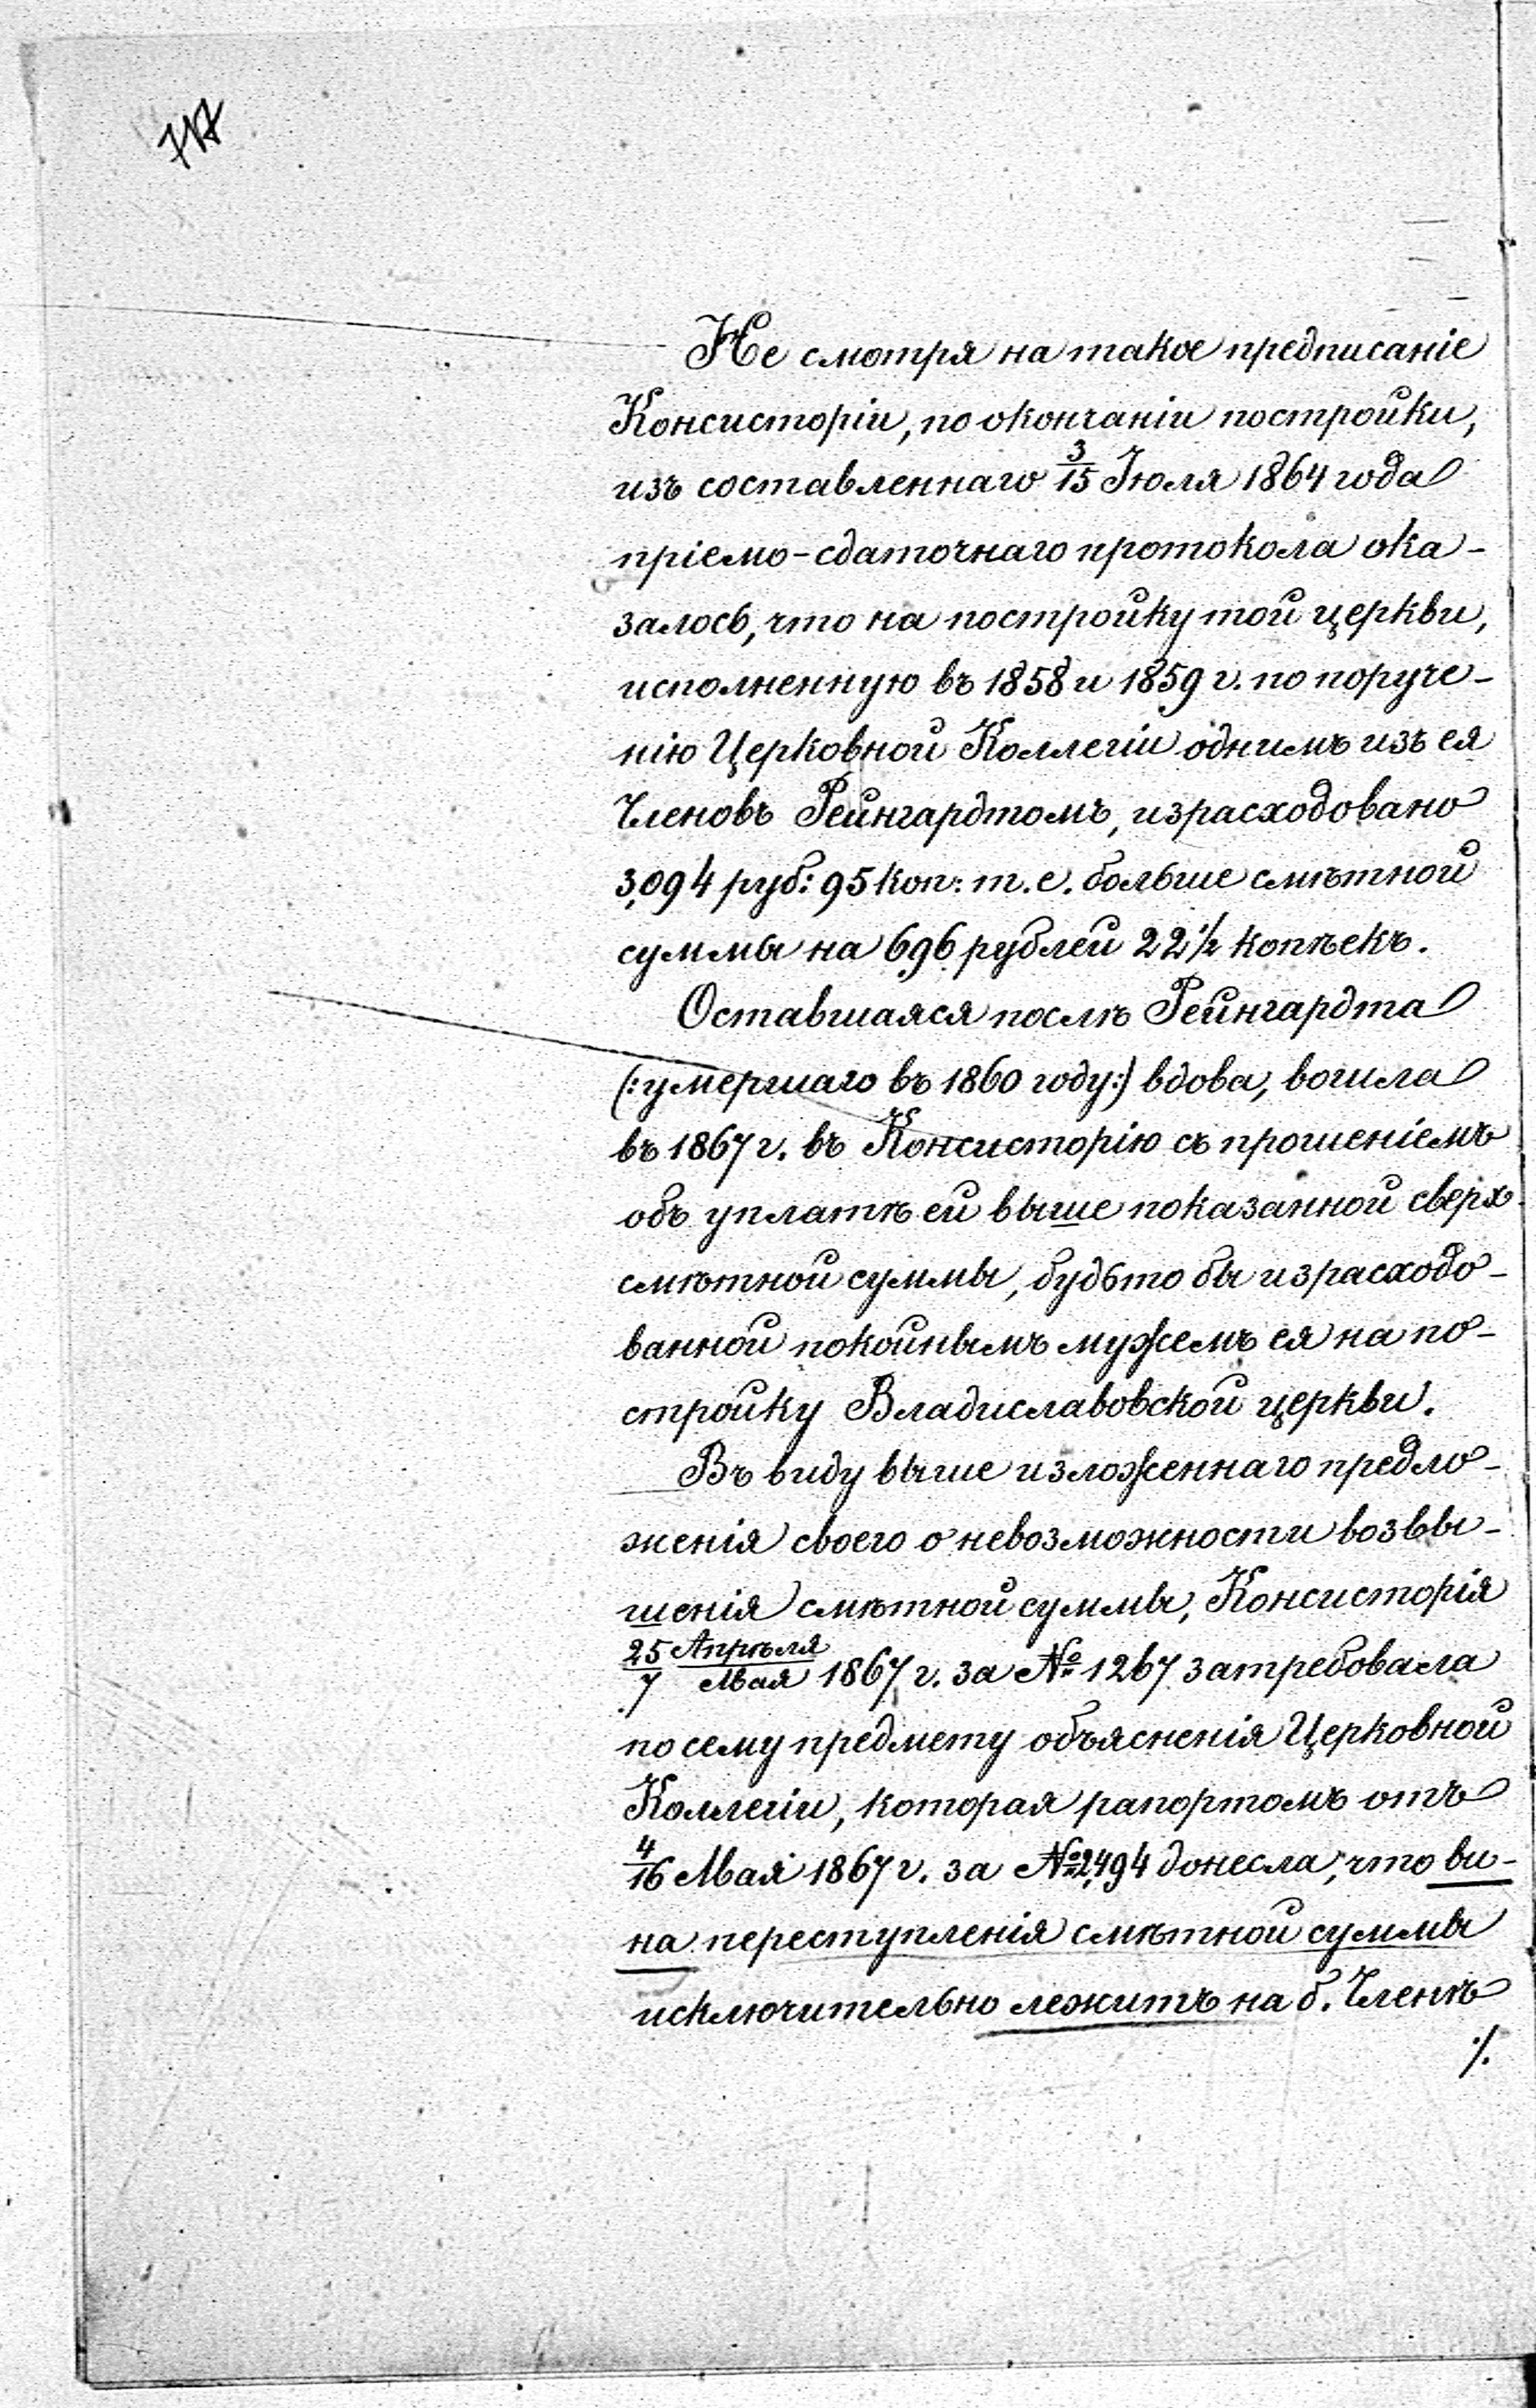 Не смотря на такое предписаніе
Консисторіи, по окончаніи постройки,
изъ составленнаго 3/15 Іюля 1864 года
пріемо-сдаточнаго протокола ока-
залось, что на постройку той церкви,
исполненную въ 1858 и 1859 г. по поруче-
нію Церковной Коллегіи однимъ изъ ея
Членовъ Рейнгардтомъ, израсходовано
3,094 руб: 95 коп: т.е. больше смѣтной
суммы на 696 рублей 22 1/2 копѣекъ.
Оставшаяся послѣ Рейнгардта
(:умершаго въ 1860 году:) вдова, вошла
въ 1867 г. въ Консисторію съ прошеніемъ
объ уплатѣ ей выше показанной сверх
смѣтной суммы, будьто бы израсходо-
ванной покойнымъ мужемъ ея на по-
стройку Владиславовской церкви.
Въ виду выше изложеннаго предло-
женія своего о невозможности возвы-
шенія смѣтной суммы, Консисторія
25 Апрѣля/7 Мая 1867 г. за № 1267 затребовала
по сему предмету объясненія Церковной
Коллегіи, которая рапортомъ отъ
4/16 Мая 1867 г. за № 2,494 донесла, что ви-
на переступленія смѣтной суммы
исключительно лежитъ на б. Членѣ
./.